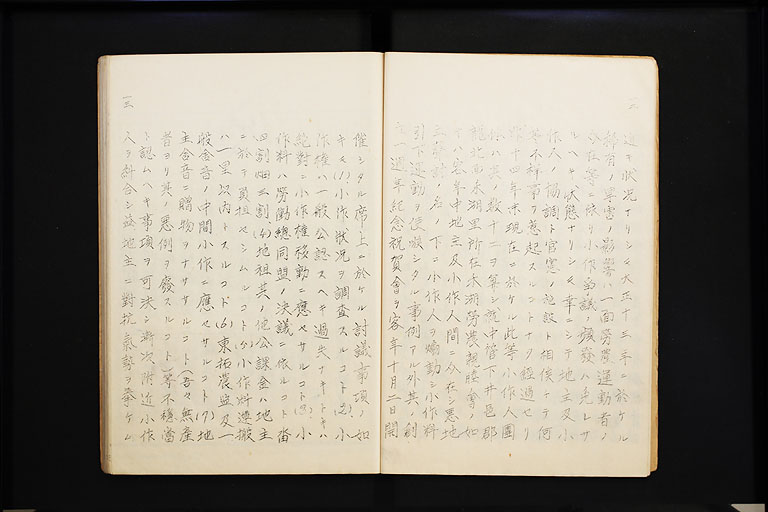 一二
近キ状況ナリシモ大正十三年ニ於ケル
稀有ノ旱害ノ影響ハ一面労農運動者ノ
介在等ニ依リ小作争議ノ頻発ハ免レサ
ルヘキ状態ナリシモ幸ニシテ地主及小
作人ノ協調ト官憲ノ施設ト相俟チテ何
等不祥事ヲ惹起スルコトナク経過セリ
昨十四年末現在ニ於ケル此等小作人團
体ハ其ノ数十二ヲ算シ就中管下井邑郡
龍北面木湖里所在木湖労農親睦會ノ如
キハ客年中地主及小作人間ニ介在シ悪地
主 ノ名ノ下ニ小作人ヲ煽動シ小作料
引下運動ヲ使嗾シタル事例アル外其ノ創
立一週年紀念祝賀會ヲ客年十月二日開
一三
催シタル席上ニ於ケル討議事項ノ如
キモ(1)小作状況ヲ調査スルコト(2)小
作権ハ一般公認スヘキ過失ナキトキハ
絶對ニ小作権移動ニ應セサルコト(3)小
作料ハ労働總同盟ノ決議ニ依ルコト畓
四割田三割(4)地租其ノ他公課金ハ地主
ニ於テ負担セシムルコト(5)小作料運搬
ハ一里以内トスルコト(6)東拓農監及一
般舎音ノ中間小作ニ應セサルコト(7)地
主舎音ニ贈物ヲナササルコト(吾々無産
者ヨリ其ノ悪例ヲ廢スルコト)等不穏當
ト認ムヘキ事項ヲ可決シ漸次附近小作
人ヲ糾合シ益地主ニ對抗氣勢ヲ挙ケム